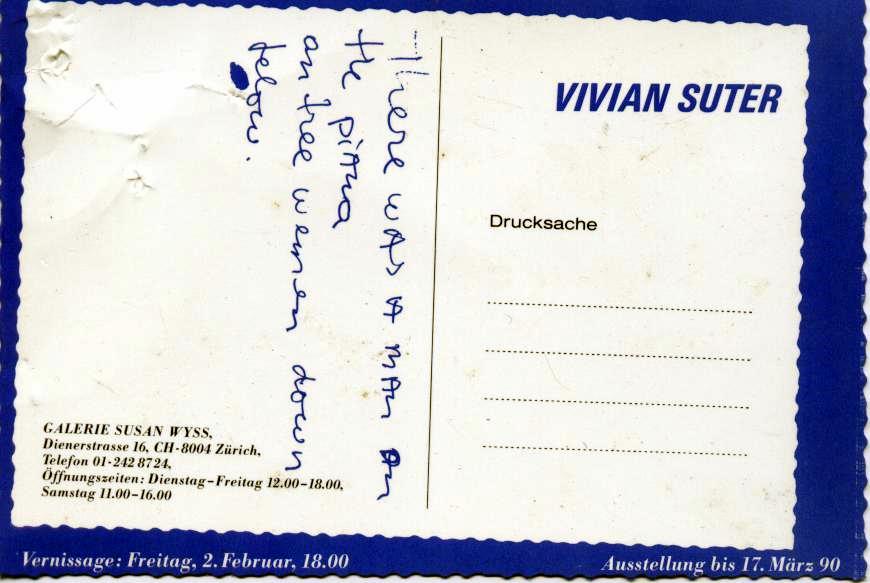 There was a man an
the piana
an free wemen down
felow.
VIVIAN SUTER
Drucksache
GALERIE SUSAN WYSS,
Dienerstrasse 16, CH-8004 Zürich,
Telefon 01-242 8724,
Öffnungszeiten: Dienstag–Freitag 12.00–18.00,
Samstag 11.00–16.00
Vernissage: Freitag, 2. Februar, 18.00
Ausstellung bis 17. März 90